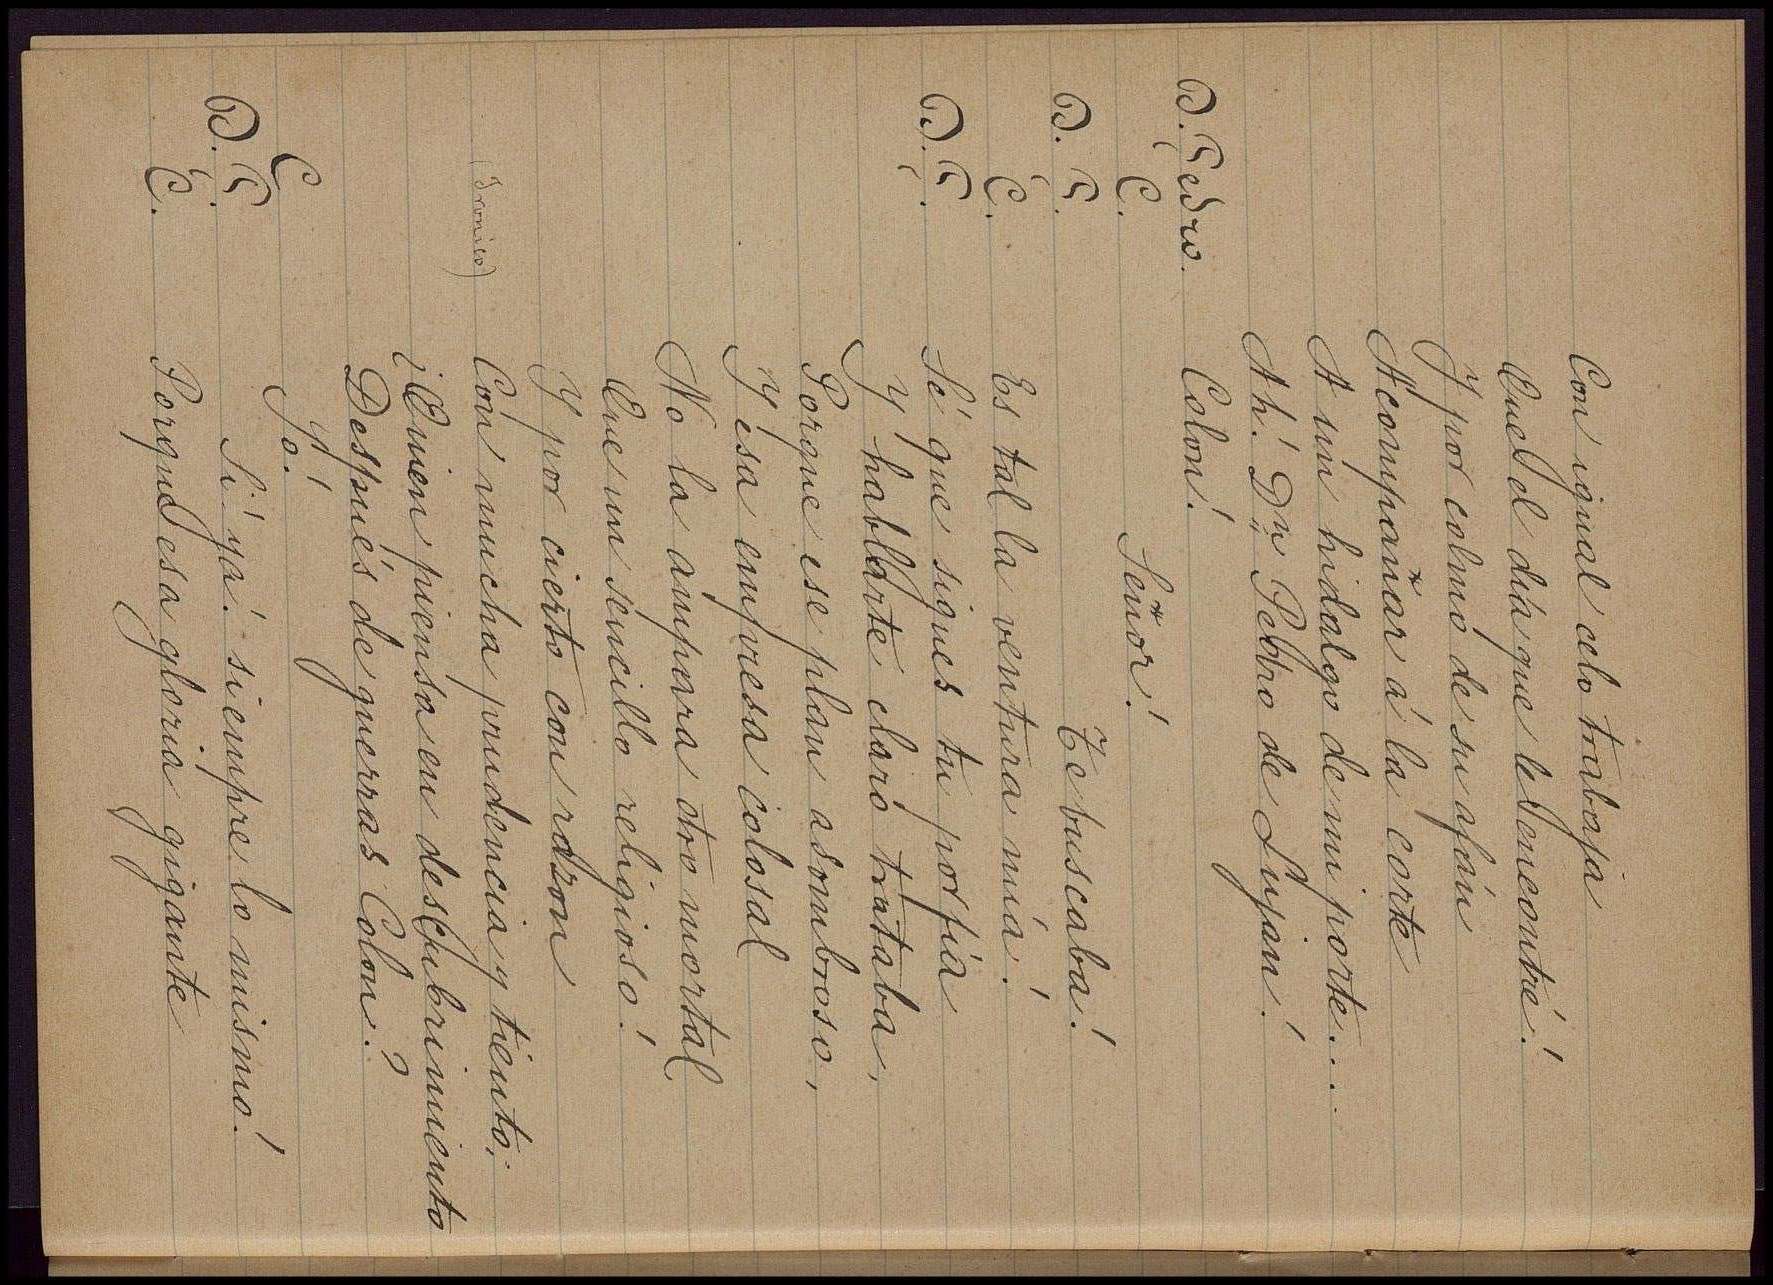 Con igual celo trabaja
Que el dia que le encontré!
Y por colmo de su afán
Acompañar á la corte
A un hidalgo de mi porte...
Ah! Dn Pedro de Lujan!
D. Pedro. Colon!
C. Señor!
D. P. Te buscaba!
C. Es tal la ventura mia!
D. P. Sé que sigues tu porfia
Y hablarte claro trataba,
Porque ese plan asombroso,
Y esa empresa colosal
No la ampara otro mortal
Que un sencillo religioso!
Y por cierto con razon
(Ironico) Con mucha prudencia y tiento;
¿Quien piensa en descubrimiento
Después de guerras Colon?
C Yo!
D. P. Si ya! siempre lo mismo!
C. Porque esa gloria gigante